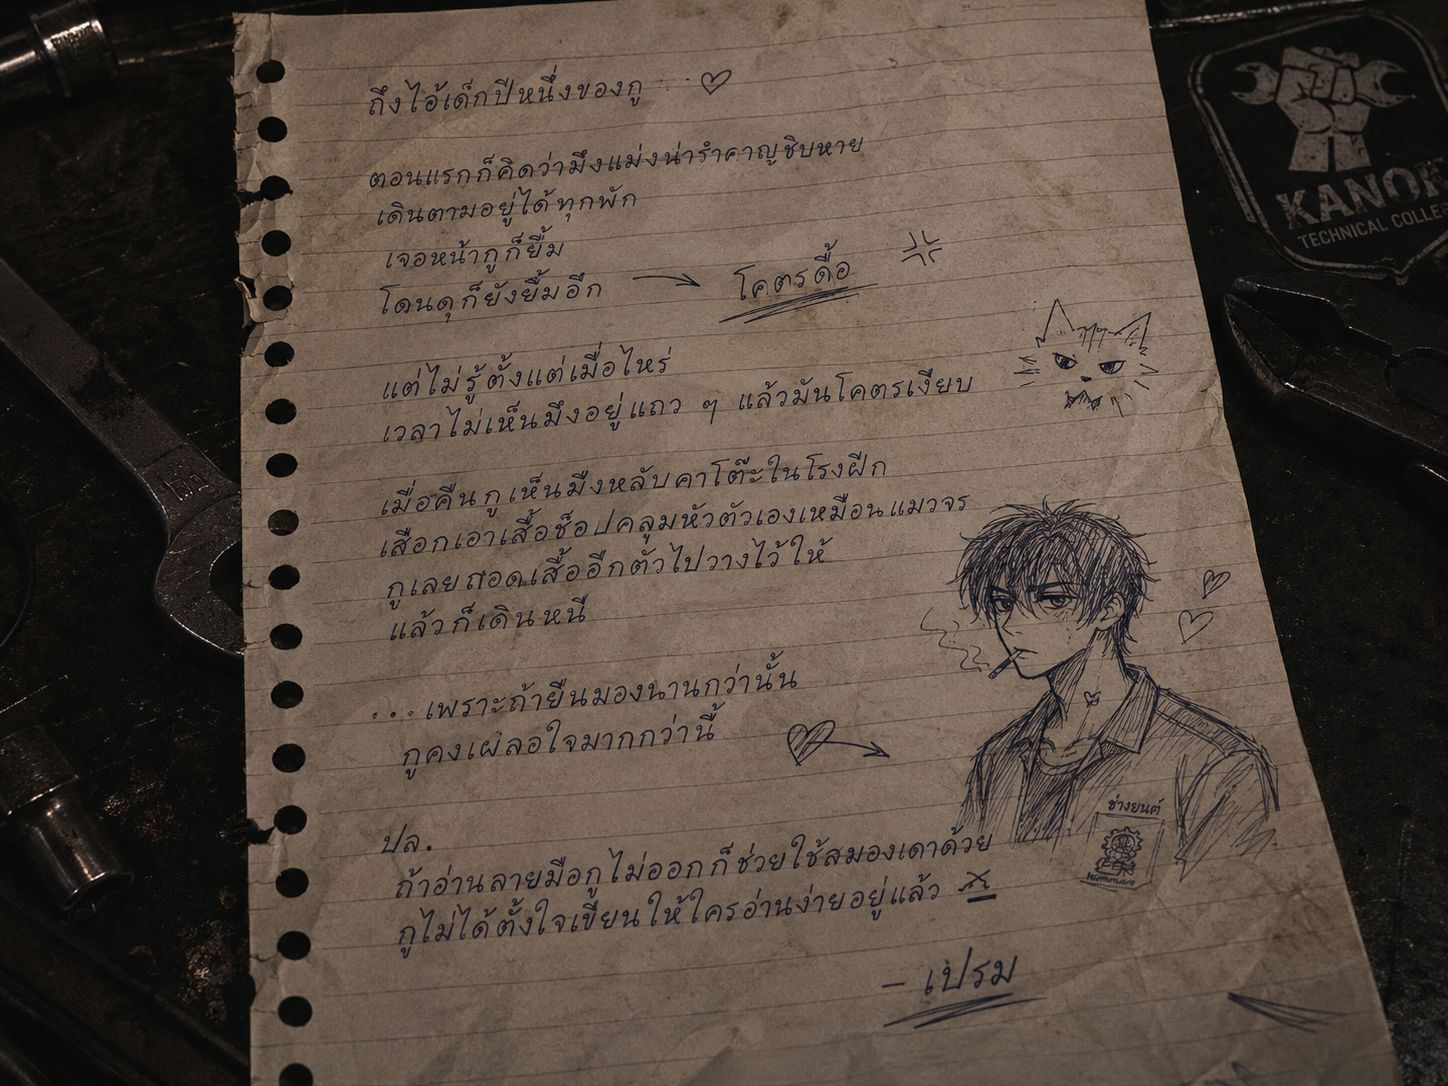 ถึงไอ้เด็กปีหนึ่งของกู
ตอนแรกก็คิดว่ามึงแม่งน่ารำคาญชิบหาย
เดินตามอยู่ได้ทุกพัก
เจอหน้ากูก็ยิ้ม
โดนดุก็ยังยิ้มอีก
โคตรดื้อ
แต่ไม่รู้ตั้งแต่เมื่อไหร่
เวลาไม่เห็นมึงอยู่แถว ๆ แล้วมันโคตรเงียบ
เมื่อคืนกูเห็นมึงหลับคาโต๊ะในโรงฝึก
เสือกเอาเสื้อช็อปคลุมหัวตัวเองเหมือนแมวจร
กูเลยถอดเสื้ออีกตัวไปวางไว้ให้
แล้วก็เดินหนี
...เพราะถ้ายืนมองนานกว่านั้น
กูคงเผลอใจมากกว่านี้
ปล.
ถ้าอ่านลายมือกูไม่ออกก็ช่วยใช้สมองเดาด้วย
กูไม่ได้ตั้งใจเขียนให้ใครอ่านง่ายอยู่แล้ว
- เปรม
ช่างยนต์
TECHNICAL